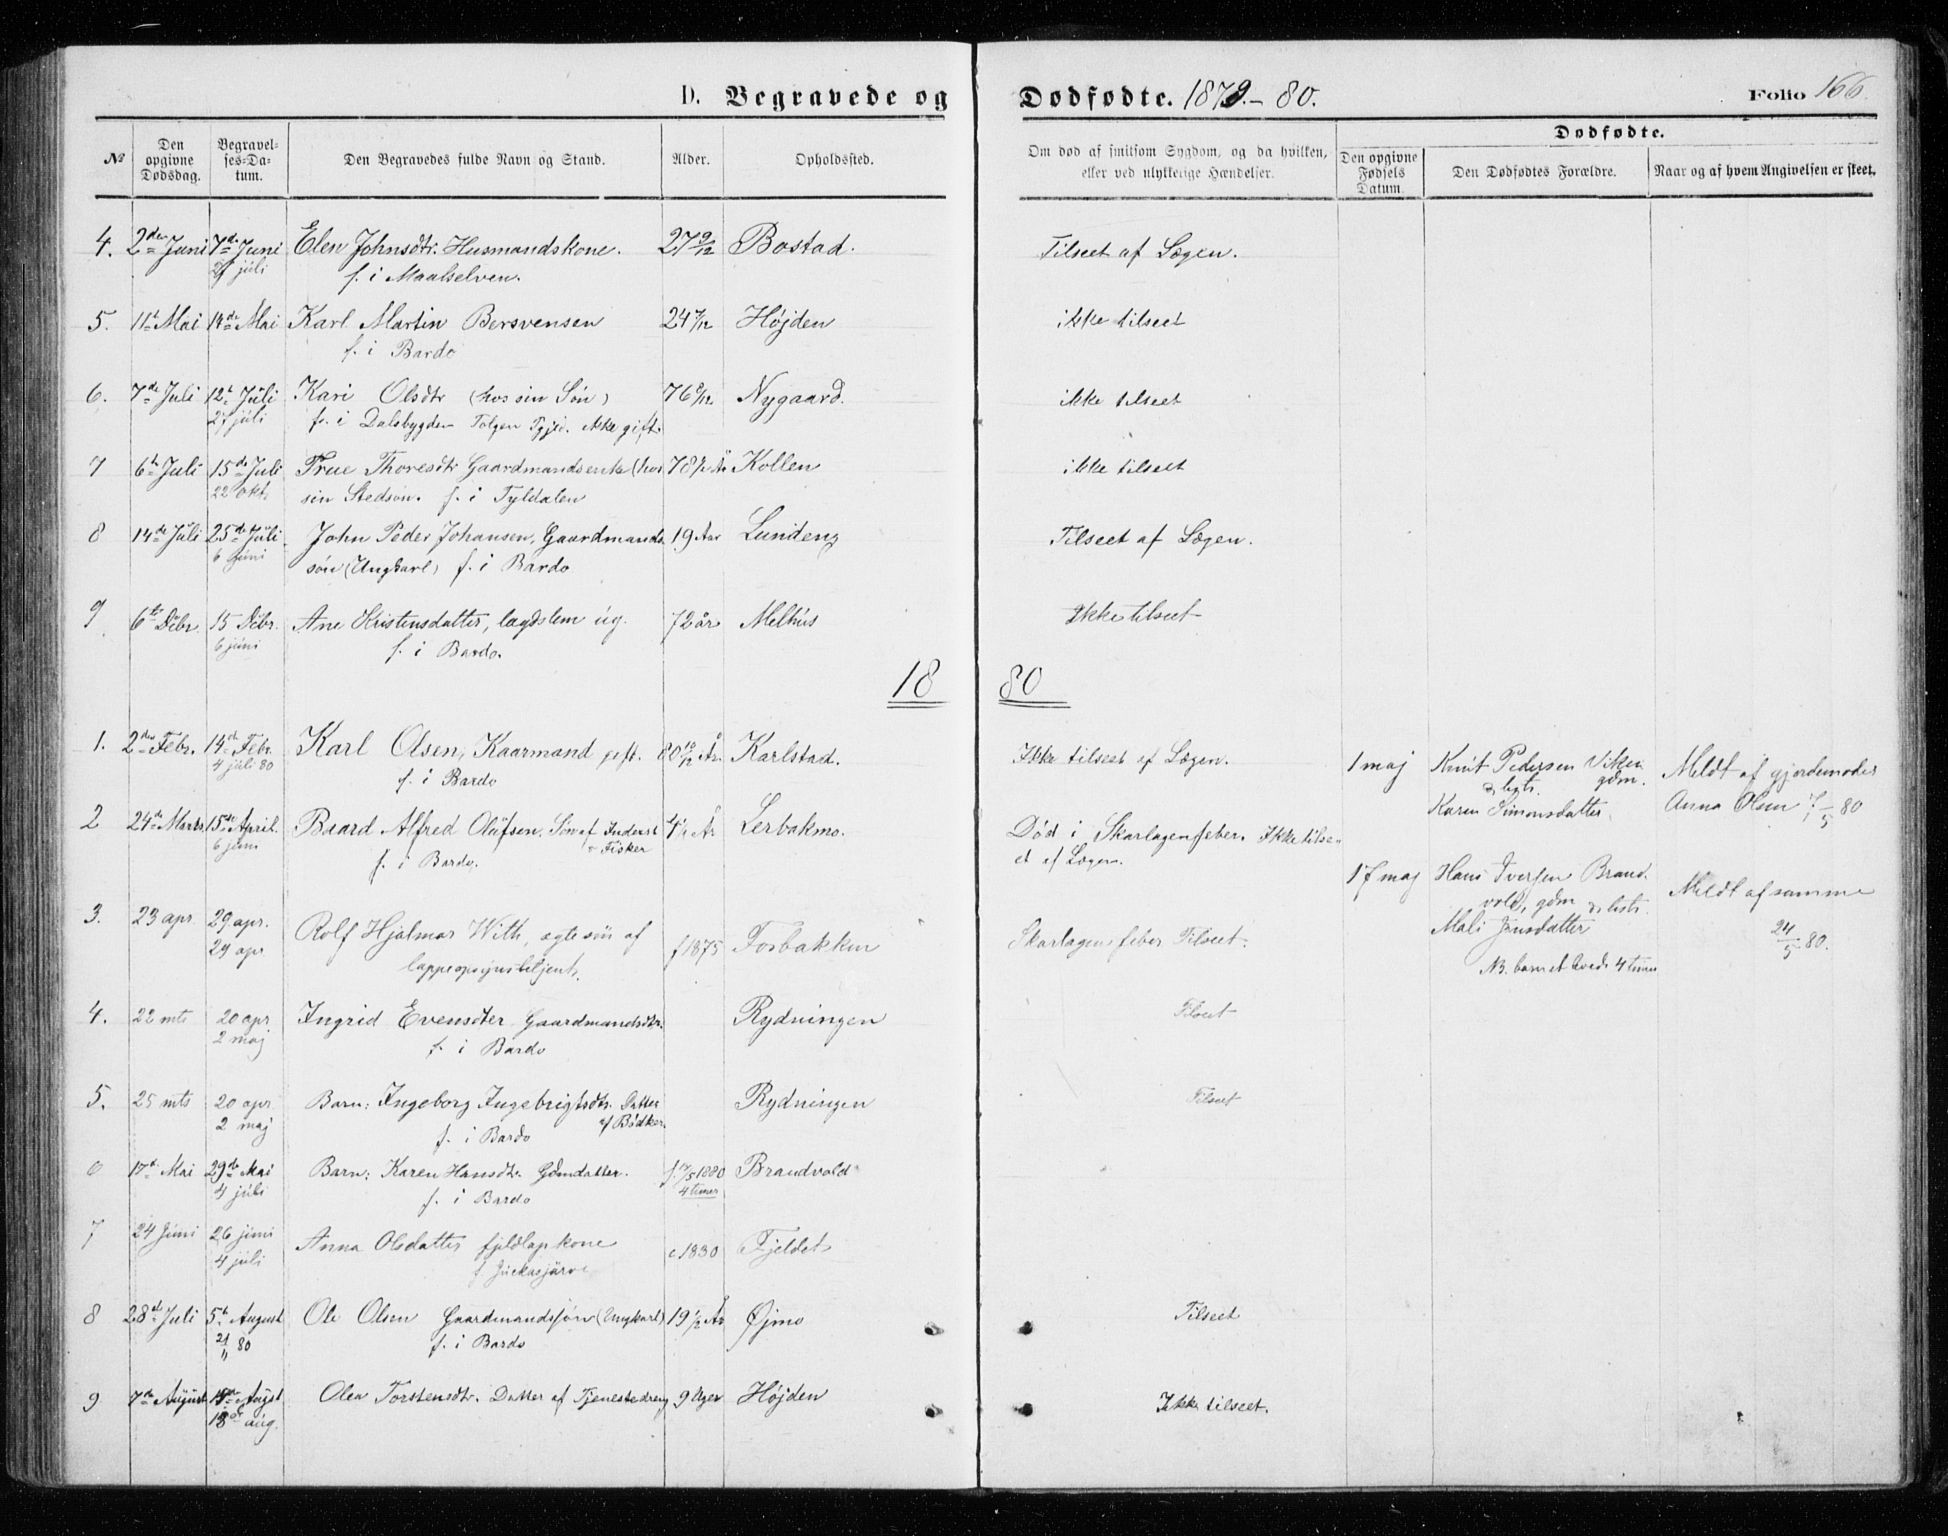 D. Begravede og Dødfødte. 1879.-80. Folio 166.
№
Den opgivne Dødsdag.
Begravelses-Datum.
Den Begravedes fulde Navn og Stand.
Alder.
Opholdssted.
Om død af smitsom Sygdom, og da hvilken, eller ved ulykkelige Hændelser.
Dødfødte.
Den opgivne Fødsels Datum.
Den Dødfødtes Forældre.
Naar og af hvem Angivelsen er skeet.
4. 2den Juni 7de Juni Elen Johnsdtr. Husmandskone. 27 9/12 Bostad. Tilseet af Lægen.
juli f. i Maalselven.
5. 11te Mai 14de Mai Karl Martin Bersvensen 24 7/12 Højden ikke tilseet
f. i Bardo
6. 7de Juli 12te Juli Kari Olsdtr (hos sin Søn) 76 8/12 Nygaard. ikke tilseet
27 juli f. i Dalsbygden Tolgen Pgjed. ikke gift.
7 6te Juli 15de Juli Thoresdtr Gaardmandsenke (hos 78 1/2 År Kollen ikke tilseet
22 okt. sin Stedsøn. f. i Tyldalen
8 14de Juli 25de Juli John Peder Johansen, Gaardmands 19 Aar Lundeng Tilseet af Lægen.
6 juni søn (Ungkarl) f. i Bardo
9 6te Dcbr. 15 Dcbr. Ane Kristensdatter, lægdslem ug. 72 år Melhus Ikke tilseet
6 juni f. i Bardo.
18 80
1. 2den Febr. 14de Febr. Karl Olsen, Kaarmand gift. 80 10/12 År. Karlstad. Ikke tilseet af Lægen. 1 maj Knut Pedersen Viken Meldt af gjordemoder
4 juli 80 f. i Bardo gdm. & hstr.
Karen Simonsdatter. Anna Olsen 7/5 80
2 24de Marts 15de April. Baard Alfred Olufsen. Søn af Inderst 4 1/2 År Lerbakmo. Død i Skarlagensfeber. Ikke tilse-
6 juni f. i Bardo. - Fisker et af Lægen.
17 maj Hans Iversen Brand Meldt af samme
vold, gdm & hstr.
3. 23 apr 29 apr. Rolf Hjalmar With, ægte søn af f 1875 Fosbakken Skarlagensfeber Tilseet. Mali Jensdatter 24/5 80.
29 apr. lappeopsynsbetjent. NB. barnet levede 4 timer
4. 22 mts 20 apr. Ingrid Evensdter Gaardmandsdtr. Rydningen Tilseet
2 maj f. i Bardo
5. 25 mts 20 apr. Barn: Ingeborg Ingebrigtsdtr. Datter Rydningen Tilseet
2 maj f. i Bardo af Bødker.
6 17de Mai 29de Mai Barn: Karen Hansdtr. Gdmdatter. f. 17/5 1880 Brandvold
4 juli f. i Bardo 4 timer
7 24 Juni 26 juni Anna Olsdatter fjeldlapkone c 1830 Fjeldet
4 juli f. Juckasjärvi
8 28de Juli 5te August Ole Olsen Gaardmandssøn (Ungkarl) 19 1/2 År Øjmo Tilseet
21/11 80 f. i Bardo
9 7de August 15de August Olea Torstensdtr. Datter af Tjenestedreng 9 Uger Højden Ikke tilseet.
aug.